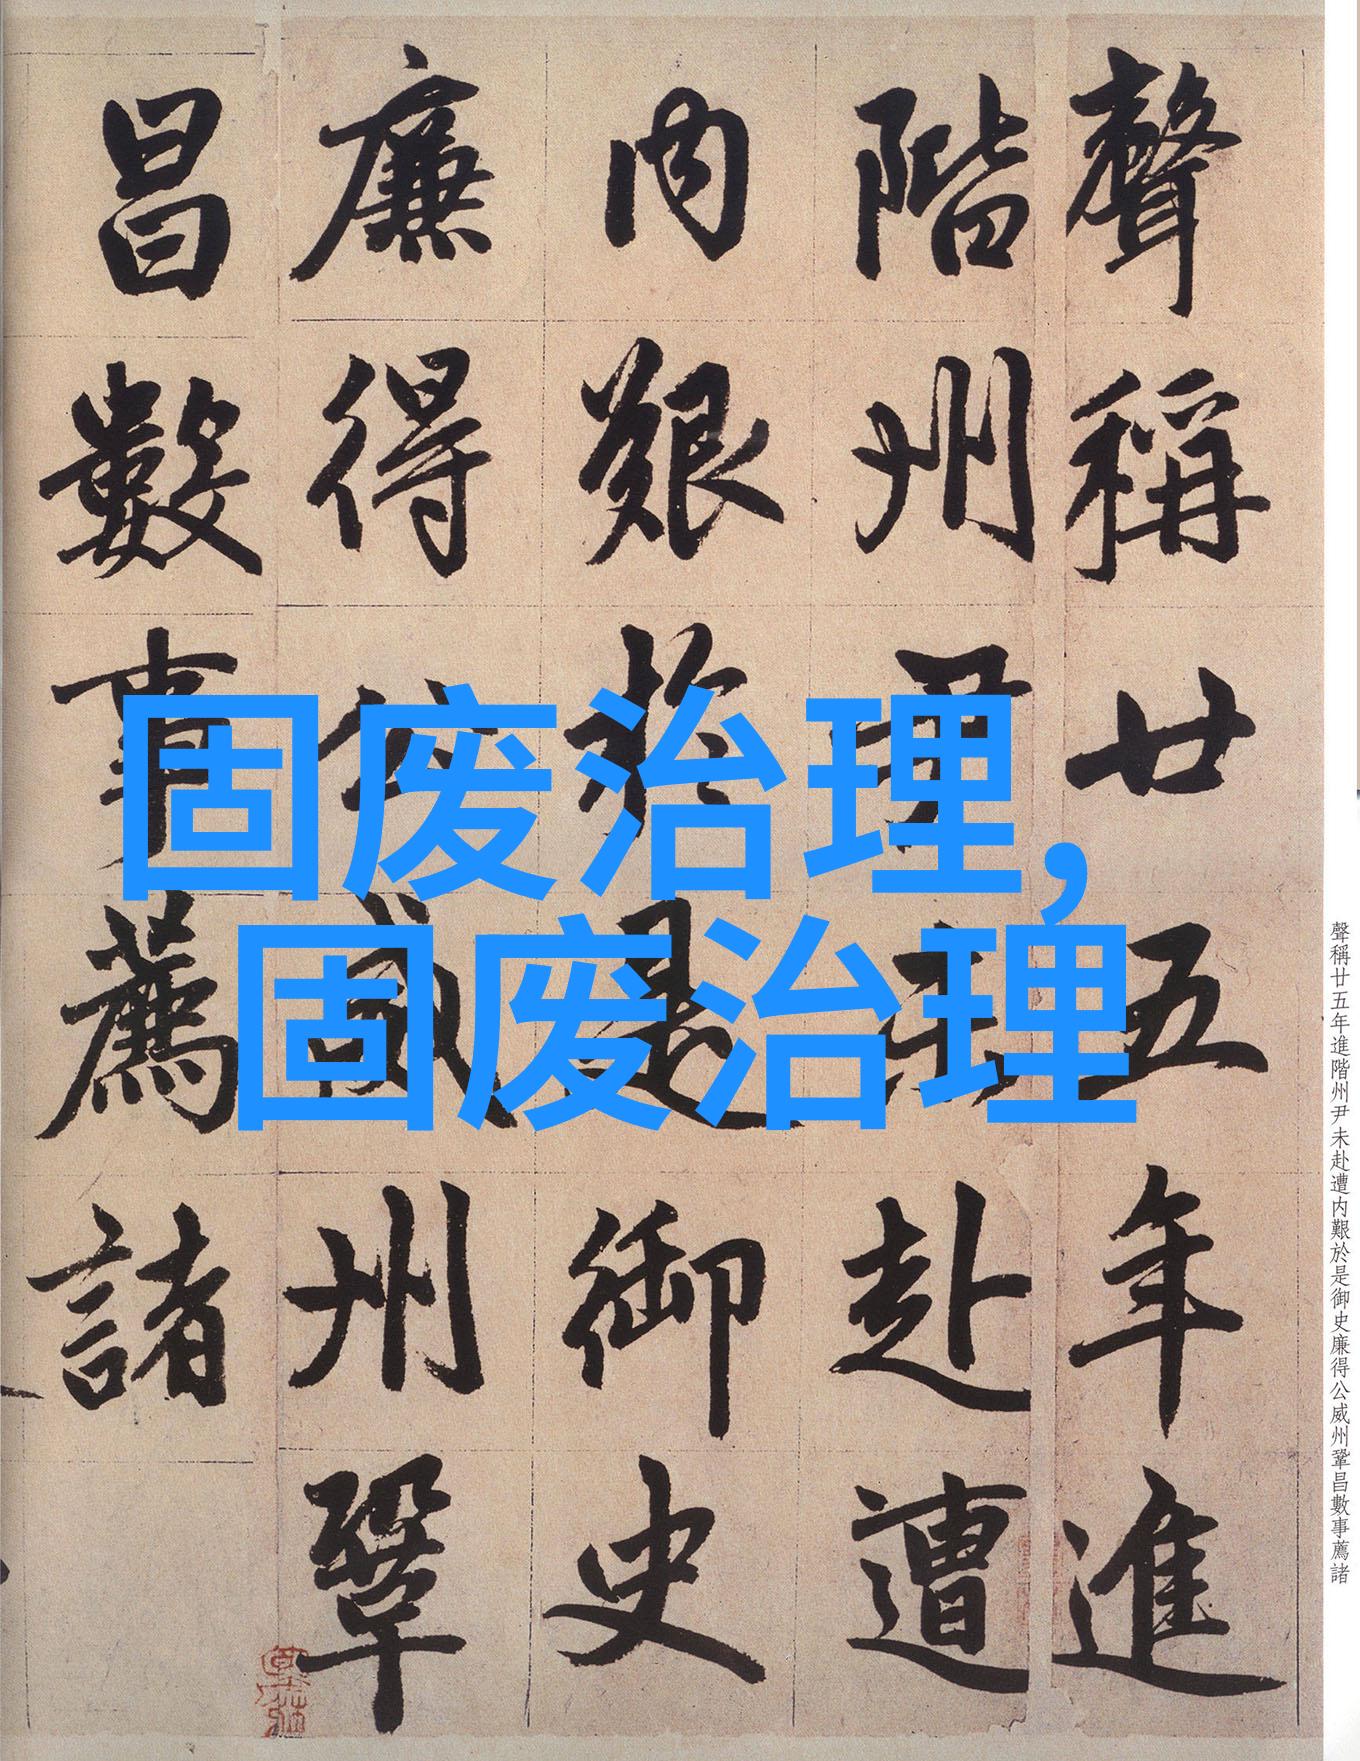 聲稱廿五年進
階州尹未赴遭
内艱於是御史
廉得公威州鞏
昌數事薦諸
固废治理,
固废治理
聲稱廿五年進階州尹未赴遭内艱於是御史廉得公威州鞏昌數事薦諸